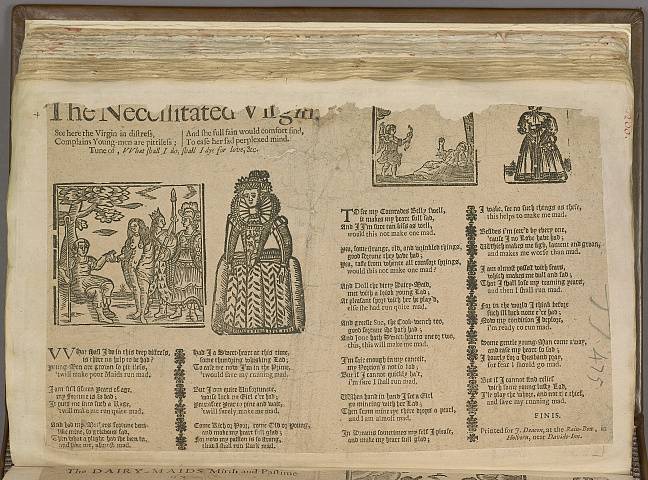 The Necessitated Virgin
See here the Virgin in distress,
Complains Young-men are pittiless;
And she full fain would comfort find,
To ease her sad perplexed mind.
Tune of, VVhat shall I do, shall I dye for love, &c.
VVHat shall I do in this deep distress,
is there no help to be had?
young-Men are grown so pittiless,
'twill make poor Maids run mad.
I am full fifteen years of age,
my fortune is so bad;
'twill make me run quite mad.
Had I a Sweet-heart at this time,
some thumping whacking Lad;
To ease me now I'm in the Prime,
'twould save my running mad.
But I am quite Unfortunate,
worse luck no Girl e'er had;
'twill surely make me mad.
Come Rich or Poor, come Old or Young,
and make my heart full glad;
For now my passion is so strong,
that I shall run stark mad.
TO see my Comrades Belly swell,
it makes my heart full sad,
And I I'm sure can kiss as well,
would this not make one mad.
Yea, some strange, old, and wrinkled things,
good fortune they have had;
Yea, take from whence all comfort springs,
would this not make one mad?
And Doll the dirty Dairy-Maid,
met with a lusty young Lad;
At pleasant sport with her he play'd,
else she had run quite mad.
And greasie Sue, the Cook-wench too,
good fortune she hath had;
And Jone hath Sweet-hearts one or two,
this, this will make me mad.
I'm fair enough in my conceit,
my Portion's not so bad;
But if I cannot quickly ha't,
I'm sure I shall run mad.
When hand in hand I see a Girl
go minching with her Lad;
Then from mine eye there drops a pearl,
and I am almost mad.
In Dreams sometimes my self I please,
and make my heart full glad;
I wake, see no such things as these,
this helps to make me mad.
Besides I'm jeer'd by every one,
'cause I no Love have had;
Which makes me sigh, lament and groan,
and makes me worse than mad.
I am almost possest with fears,
which makes me dull and sad;
That I shall lose my cunning years,
and then I shall run mad.
For in the world I think before
such ill luck none e're had;
Now my condition I deplore,
I'm ready to run mad.
Some gentle young-Man come away,
and ease my heart so sad;
I hourly for a Husband pray,
for fear I should go mad.
But if I cannot find relief
with some young lusty Lad,
I'le play the whore, and not the thief,
and save my running mad.
FINIS.
Printed for J. Deacon, at the Rain-Bow, in
Holborn, near Davids-Inn.
475
The DAIRY-MAIDS Mirth and Pastime